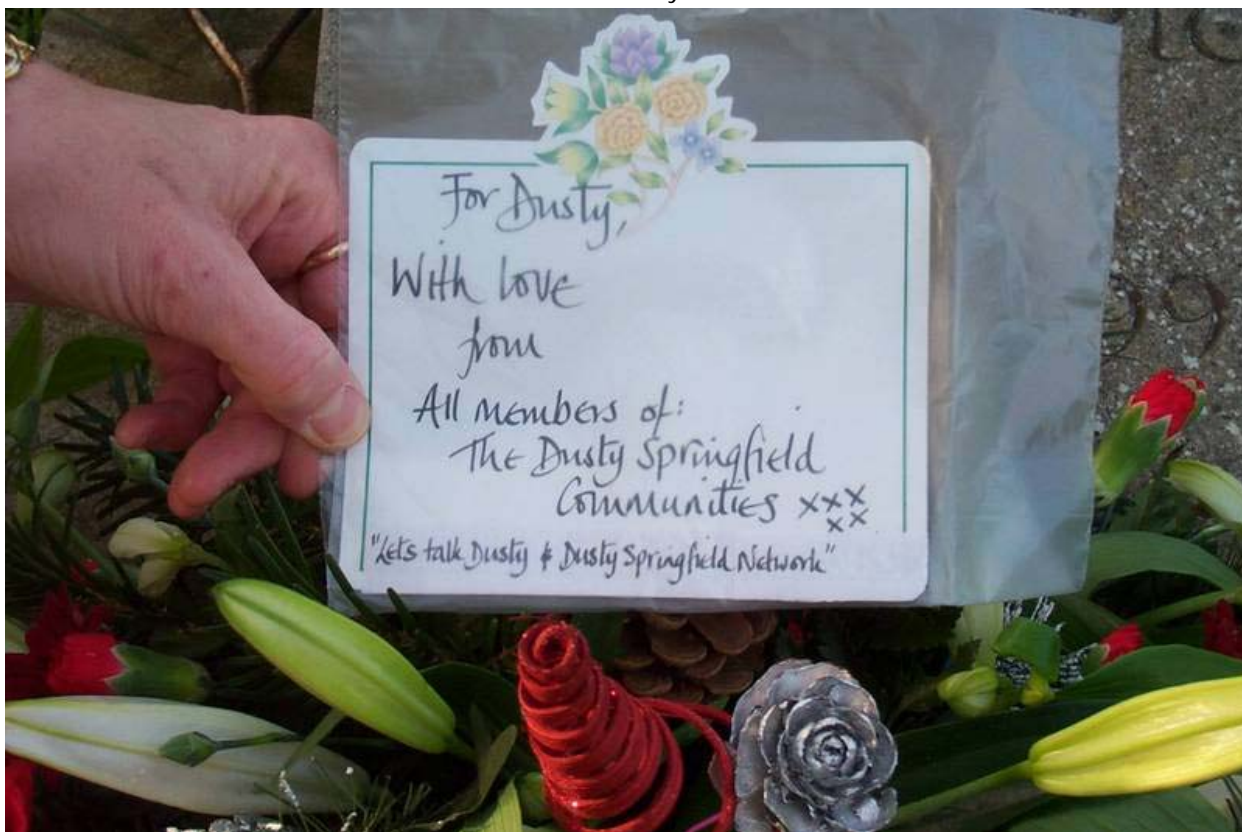 For Dusty,
With love
from
All members of:
The Dusty Springfield
Communities xxx
xx
"Lets talk Dusty & Dusty Springfield Network"